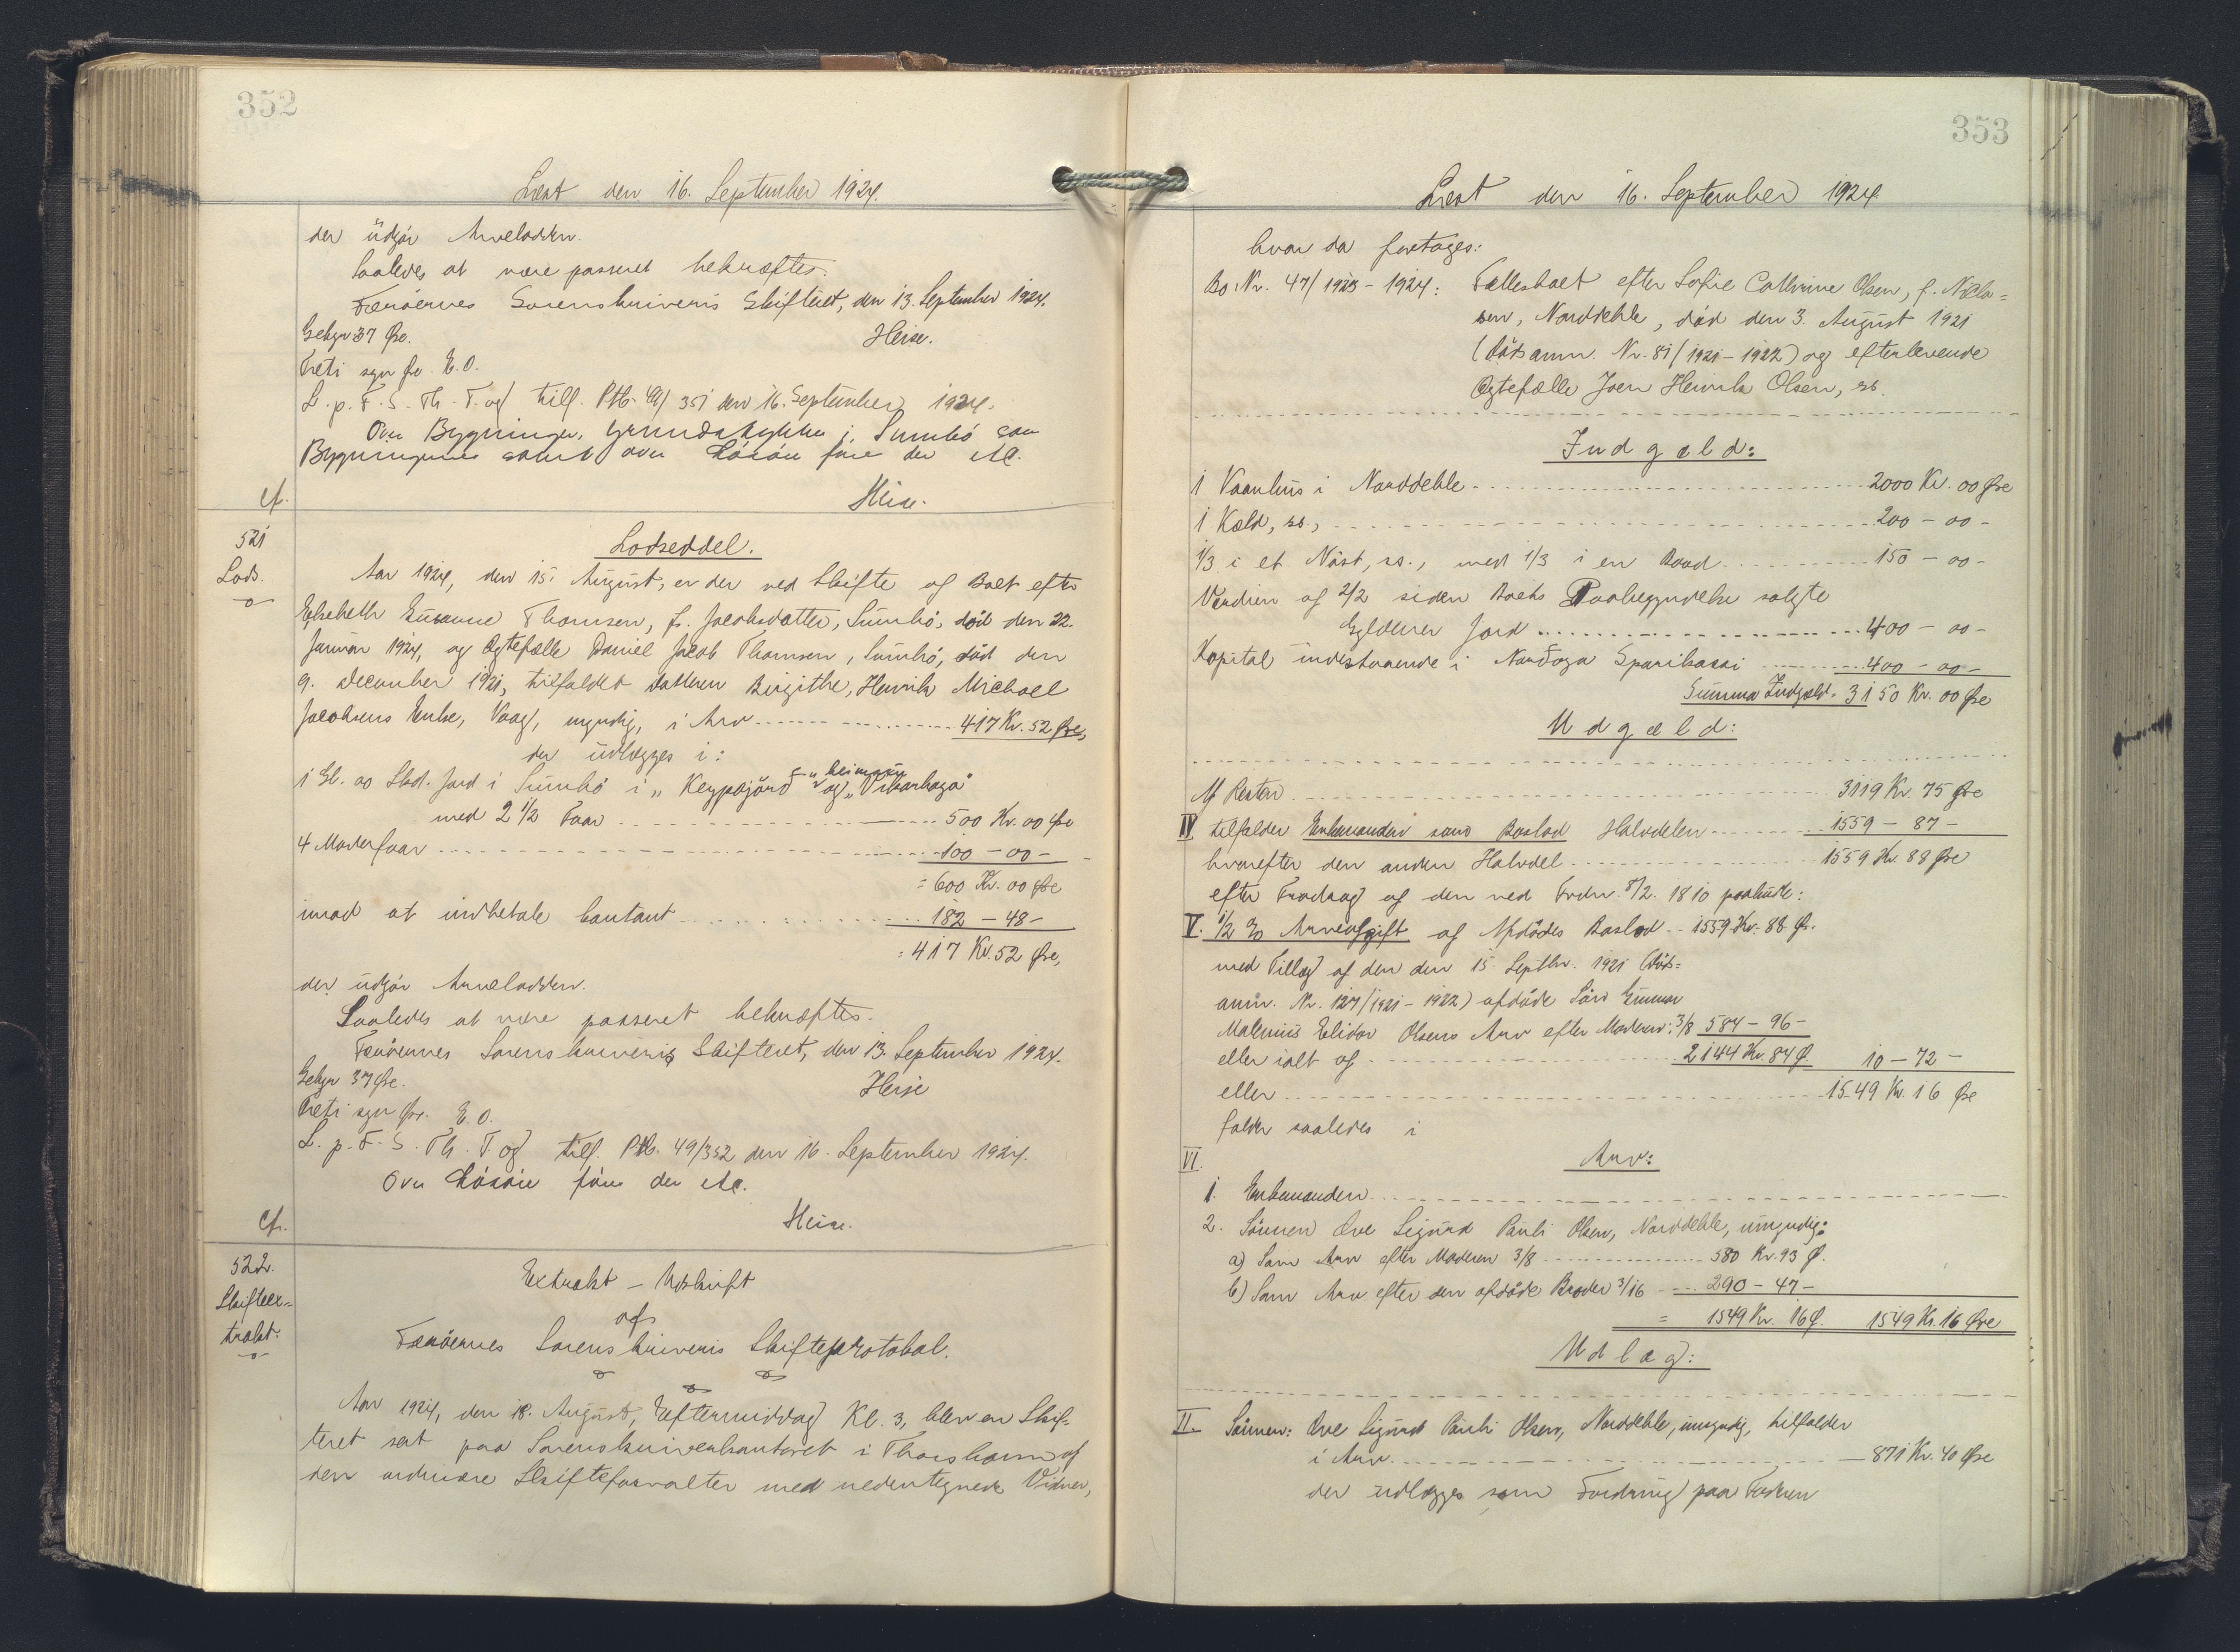 352
Læst den 16. September 1924.
der üdgör Arvelodden.
Saaledes at være passeret bekræftes.
Færöernes Sorenskriveris Skifteret, den 13. September 1924.
Gebyr 37 Øre. Heise.
Treti syv Øre. E.O.
L. p. F. S. Th. T. og till. Ptk. 49/351 den 16. September 1924.
Ovn Bygninger, Grundstykke i Sumbö som
Bygningerne samt ovn Lösöre före der etc.
Cf. Heise.
521
Lods.
Lodseddel.
Aar 1924, den 15. August, er der ved Skifte af Boet efter
Elsebeth Susanne Thomsen, f. Jacobsdatter, Sumbö, död den 22.
Januar 1924, og Ægtefælle Daniel Jacob Thomsen, Sumbö, död den
9. December 1921, tilfaldet Datteren Birgithe, Henrik Michael
Jacobsens Enke, Vaag, myndig, i Arv 417 Kr. 52 Øre,
der üdlægges i:
1 Gl. 00 Skd. Jord i Sumbö i "Keypajörd" og "Vikarhaga"
med 2 1/2 Faar 500 Kr. 00 Øre
4 Moderfaar 100 - 00 -
= 600 Kr. 00 Øre
imod at indbetale contant 182 - 48 -
= 417 Kr. 52 Øre,
der üdgör Arvelodden.
Saaledes at være passeret bekræftes.
Færöernes Sorenskriveris Skifteret, den 13. September 1924.
Gebyr 37 Øre. Heise
Treti syv Øre. E.O.
L. p. F. S. Th. T. og till. Ptk. 49/352 den 16. September 1924.
Ovn Lösöre före der etc.
Cf. Heise.
522.
Skifteex=
trakt.
Extrakt - Udskrift
af
Færöernes Sorenskriveris Skifteprotokol.
Aar 1924, den 18. August, Eftermiddag Kl. 3, blev en Skif-
teret sat paa Sorenskriverkontoret i Thorshavn af
den ordinære Skifteforvalter med nedentegnede Vidner,
353
Læst den 16. September 1924.
hvor da foretages:
Bo Nr. 47/1923-1924: Fællesboet efter Sofie Cathrine Olsen, f. Niela=
sen, Norddeble, död den 3. August 1921
(Dödsanm. Nr. 81/1921-1922) og efterlevende
Ægtefælle Joen Henrik Olsen, ss.
Indgæld:
1 Vaanhus i Norddeble 2000 Kr. 00 Øre
1 Kæld, ss., 200 - 00 -
1/3 i et Nöst, ss., med 1/3 i en Baad 150 - 00 -
Værdien af 2/2 siden Boets Paabegyndelse solgte
Gylden Jord 400 - 00 -
Kapital indestaaende i Nordoya Sparikassi 400 - 00 -
Summa Indgæld = 3150 Kr. 00 Øre
Udgæld:
Af Resten 3119 Kr. 75 Øre
IV tilfalder Enkemanden som Boslod Halvdelen 1559 - 87 -
hvorefter den anden Halvdel 1559 Kr. 88 Øre
efter Fradrag af den ved Frdn. 8/2. 1810 paabudte:
V. 1/2 % Arveafgift af Afdödes Boslod 1559 Kr. 88 Ø.
med Tillæg af den den 15. Septbr. 1921 (Döds=
anm. Nr. 127/1921-1922) afdöde Sön Gunnar
Malenius Elidar Olsens Arv efter Moderen: 3/8 584 - 96 -
eller ialt af 2144 Kr. 84 Ø. 10 - 72 -
eller 1549 Kr. 16 Øre
falder saaledes i
VI. Arv:
1. Enkemanden
2. Sönnen Ove Sigurd Pauli Olsen, Norddeble, umyndig:
a) Som Arv efter Moderen 3/8 580 Kr. 93 Ø.
b) Som Arv efter den afdöde Broder 3/16 290 - 47 -
= 1549 Kr. 16 Ø. 1549 Kr. 16 Øre
Udlæg:
II. Sönnen: Ove Sigurd Pauli Olsen, Norddeble, umyndig, tilfalder
i Arv 871 Kr. 40 Øre
der udlægges som Fordring paa Faderen